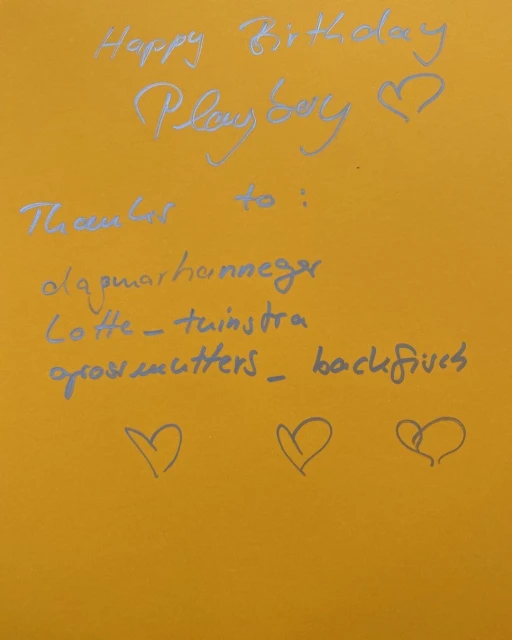 Happy Birthday
Playboy
Thanks to:
dagmarhenneger
Lotte_tuinstra
grossmutters_backfisch